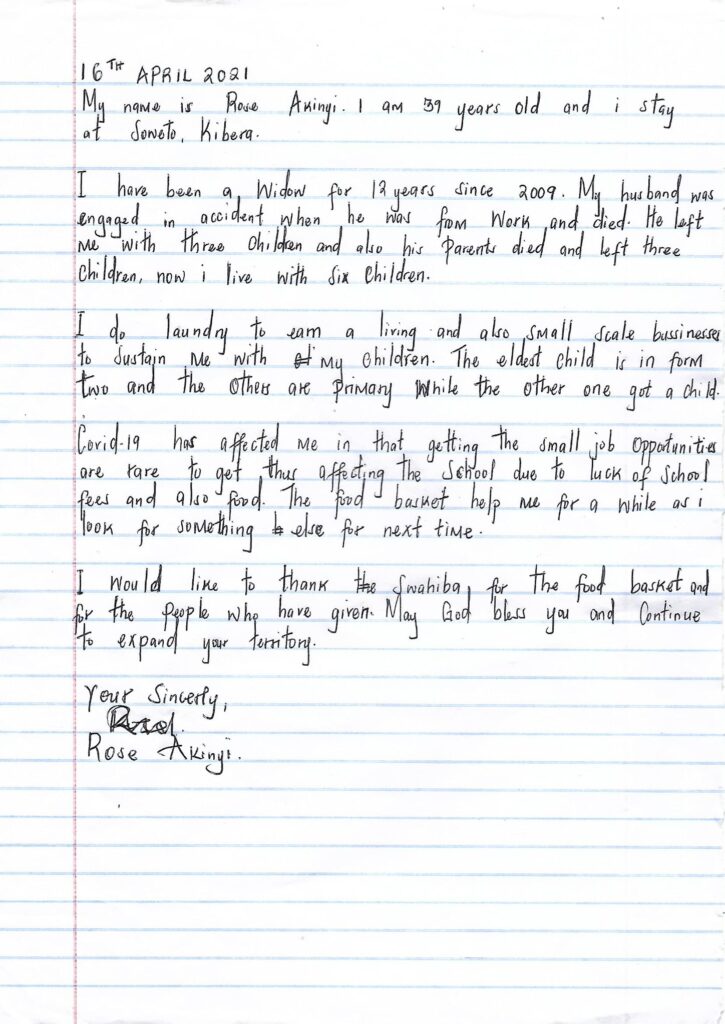 16TH APRIL 2021
My name is Rose Akinyi. I am 39 years old and i stay
at Soweto, Kibera.
I have been a Widow for 12 years since 2009. My husband was
engaged in accident when he was from Work and died. He left
me with three children and also his Parents died and left three
Children, now i live with Six Children.
I do laundry to earn a living and also small scale bussinesses
to sustain me with my children. The eldest child is in form
two and the others are primary while the other one got a child.
Covid-19 has affected me in that getting the small job opportunities
are rare to get thus affecting the school due to luck of school
fees and also food. The food basket help me for a while as i
look for something else for next time.
I would like to thank the Swahiba for the food basket and
for the people who have given. May God bless you and Continue
to expand your territory.
Your Sincerly,
Rose Akinyi.